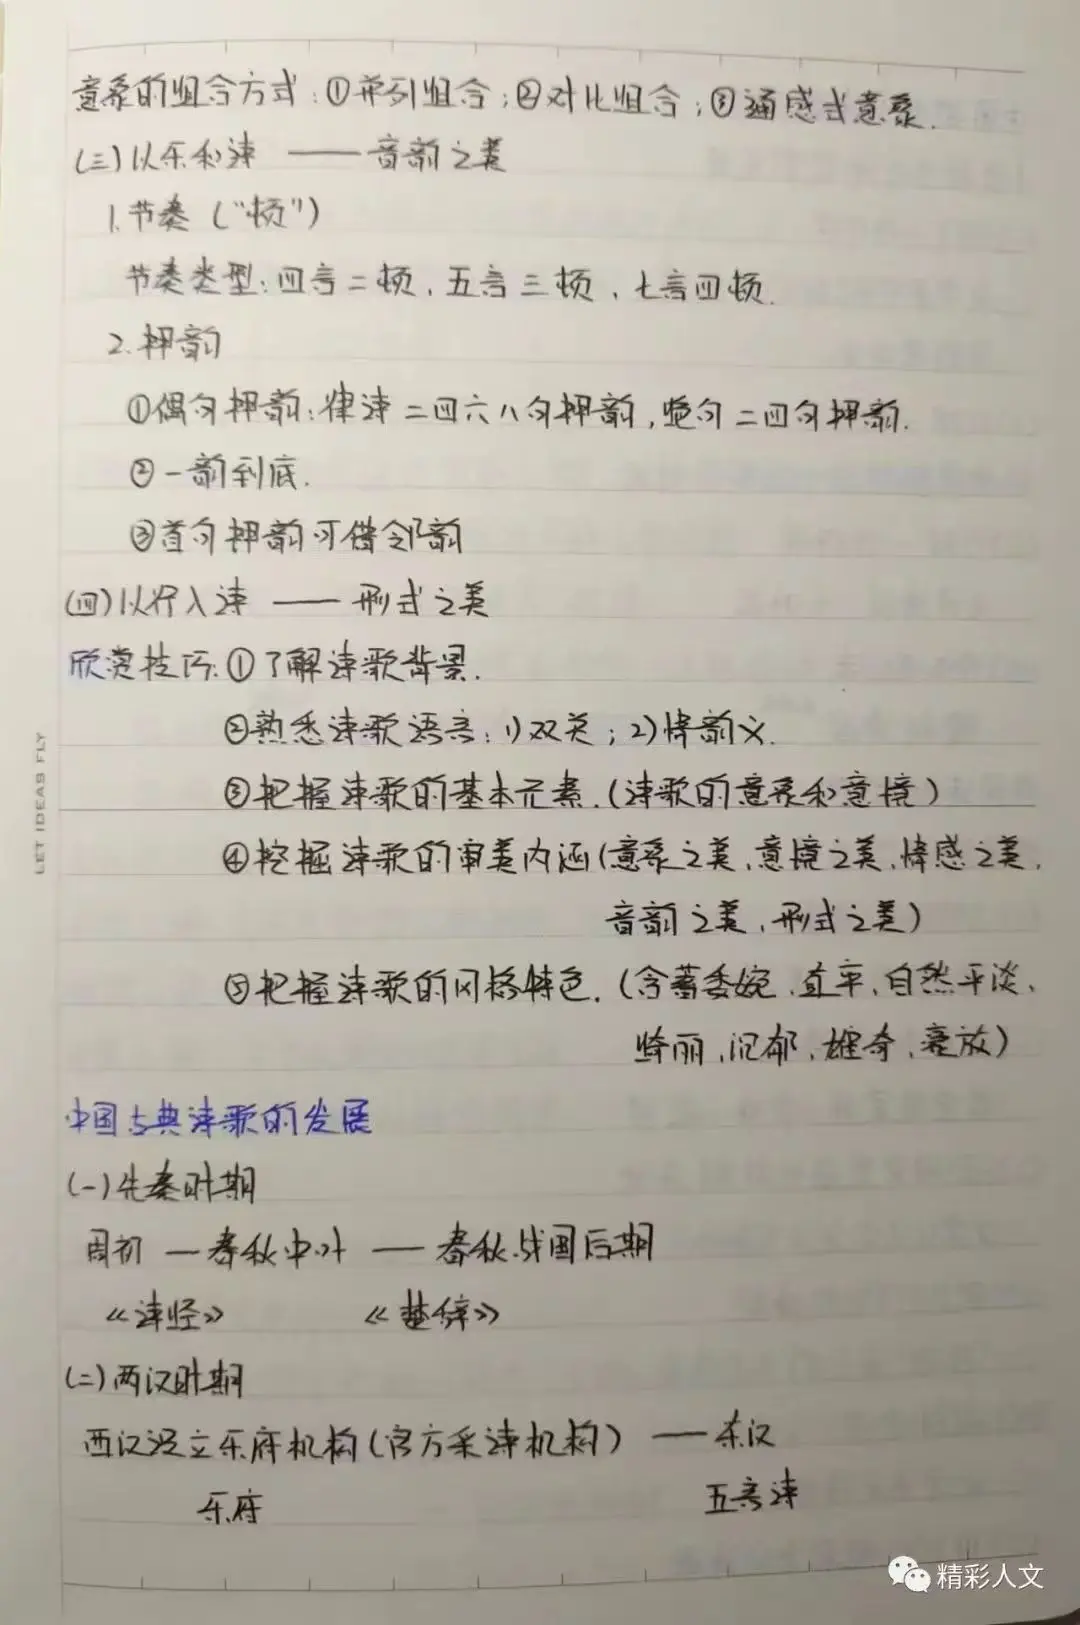 意象的组合方式：①并列组合；②对比组合；③通感式意象.
(三)以乐和诗 —— 音韵之美
1.节奏（“顿”）
节奏类型：四言二顿、五言三顿、七言四顿.
2.押韵
①偶句押韵：律诗二四六八句押韵，绝句二四句押韵.
②一韵到底.
③首句押韵可借邻韵
(四)以行入诗 —— 形式之美
欣赏技巧：①了解诗歌背景.
②熟悉诗歌语言：1)双关；2)情韵义.
③把握诗歌的基本元素.（诗歌的意象和意境）
④挖掘诗歌的审美内涵(意象之美、意境之美、情感之美、
音韵之美、形式之美）
⑤把握诗歌的风格特色.（含蓄委婉、直率、自然平淡、
绮丽、沉郁、雄奇、豪放）
中国古典诗歌的发展
(一)先秦时期
周初 — 春秋中叶 — 春秋战国后期
《诗经》 《楚辞》
(二)两汉时期
西汉设立乐府机构(官方采诗机构） — 东汉
乐府 五言诗
LET IDEAS FLY
精彩人文